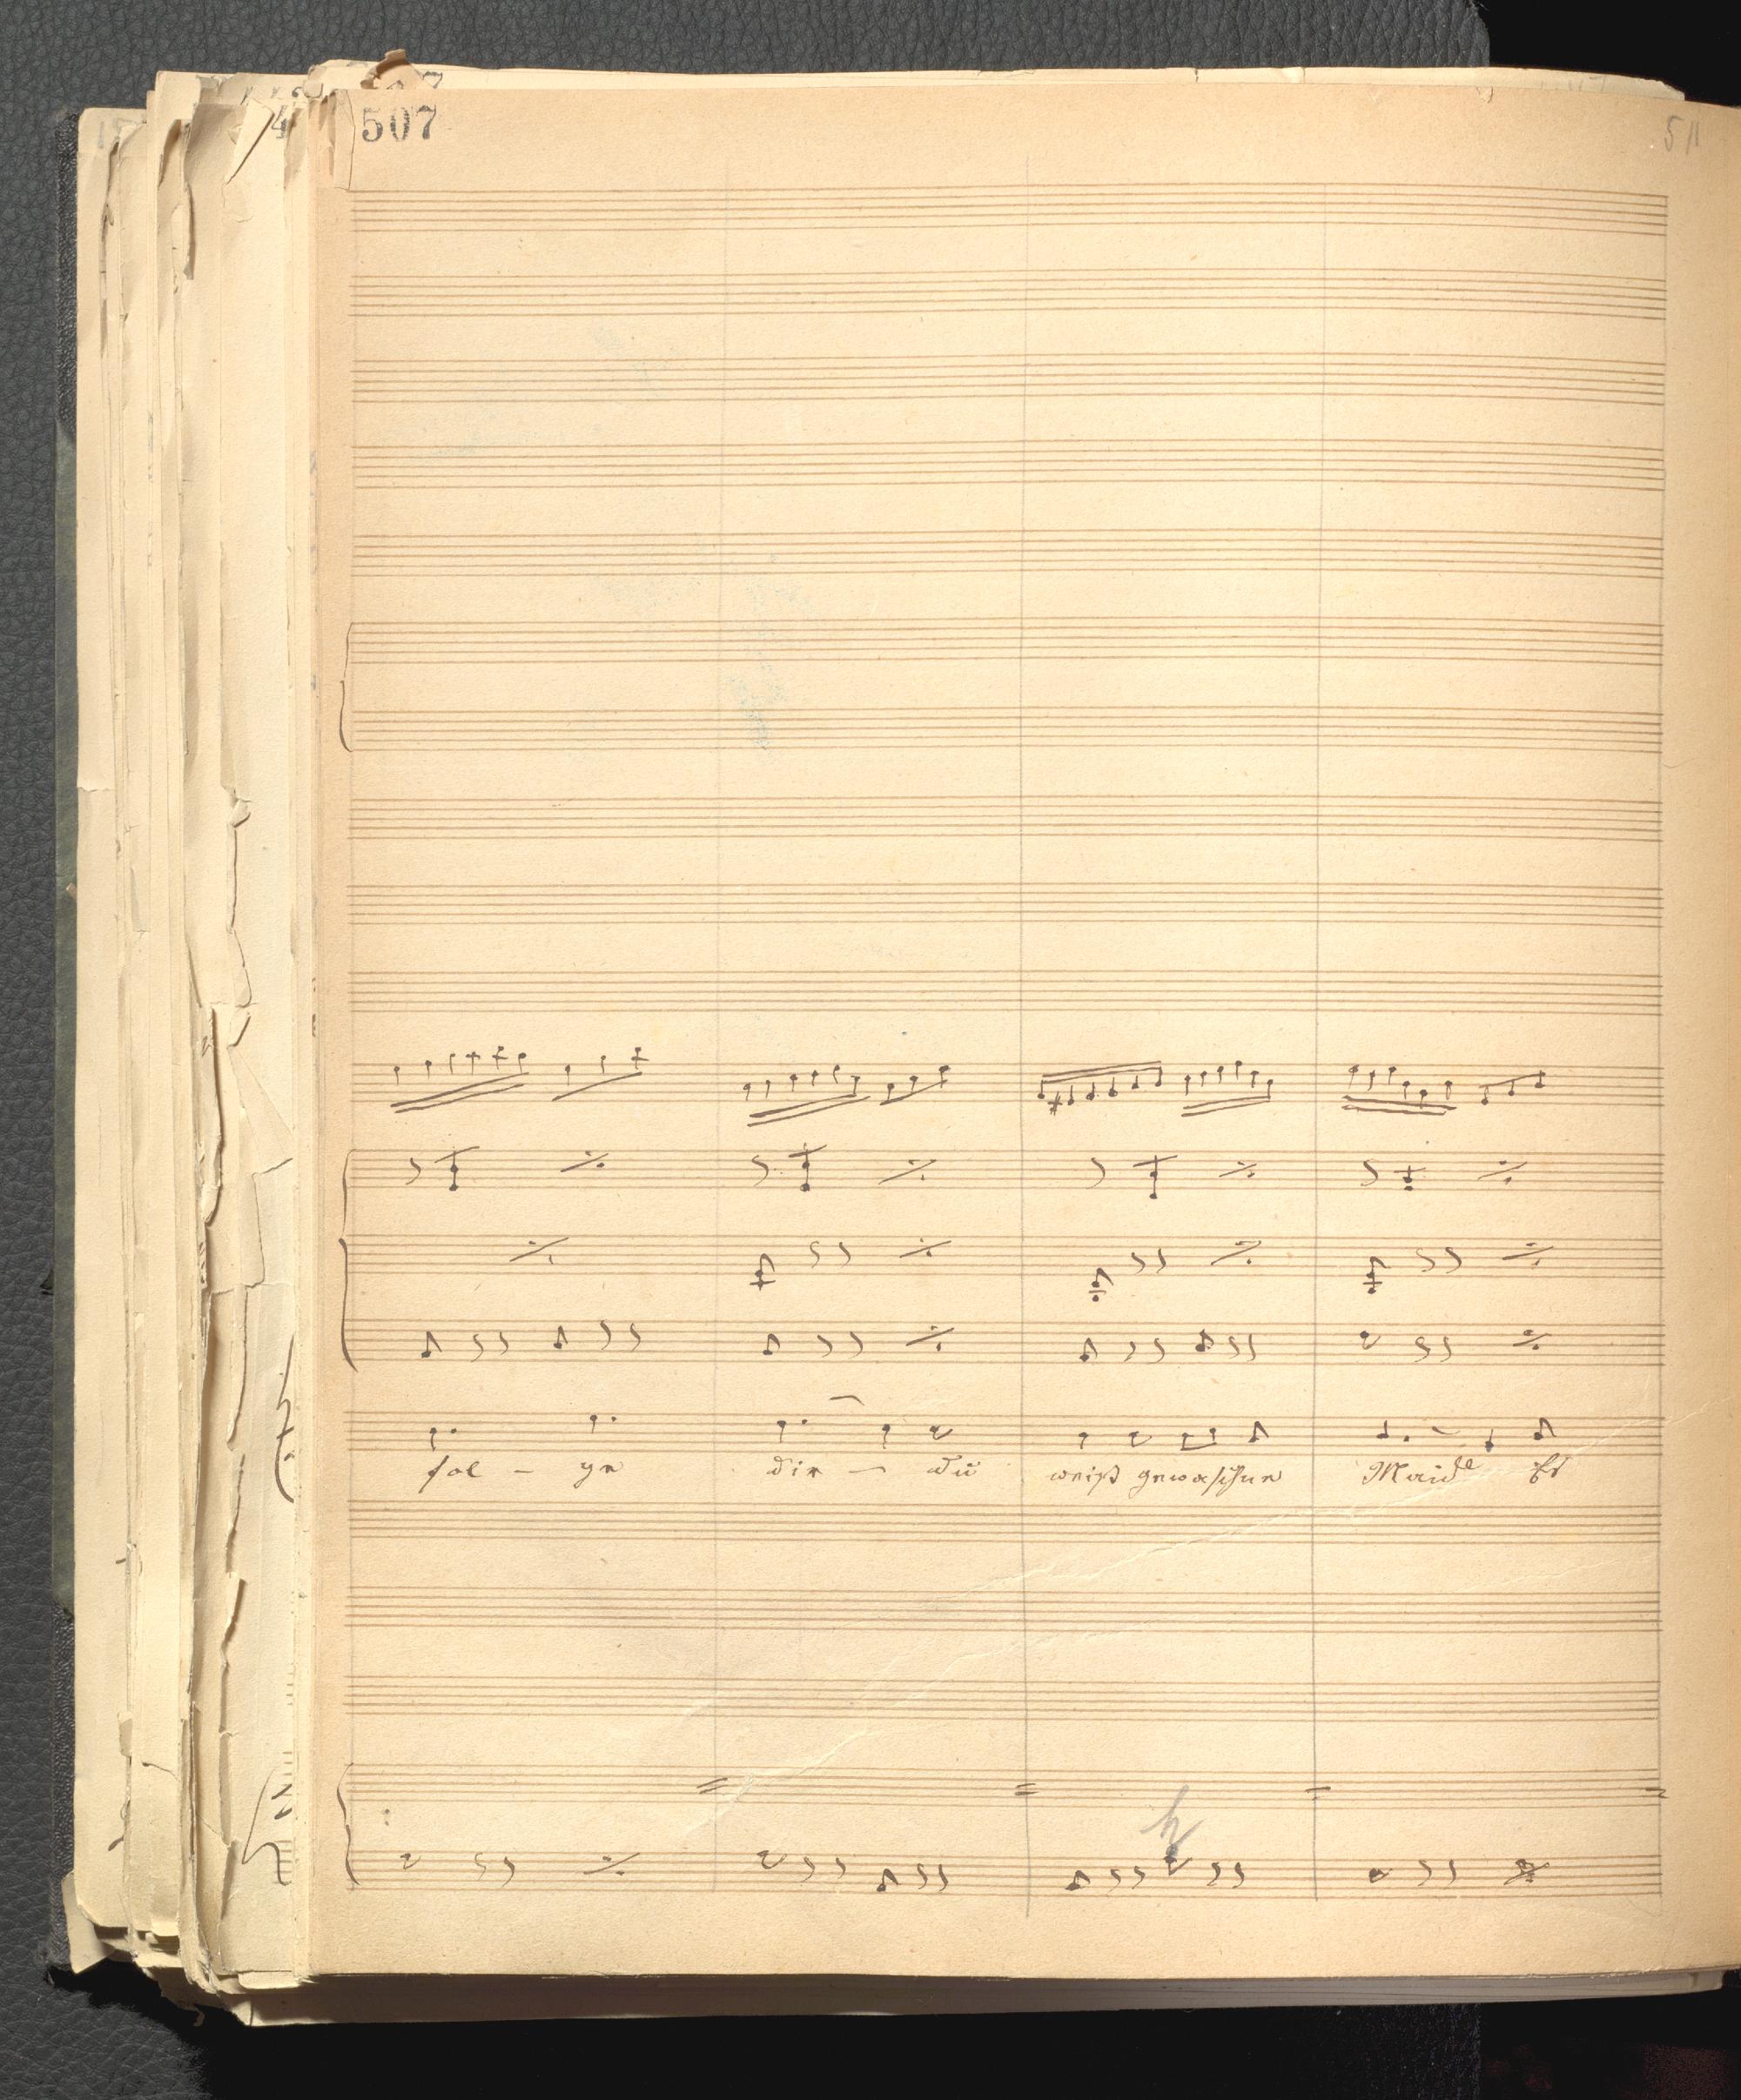 507
511
fol – gen dir – du weiß gewaschene Maid Es
h